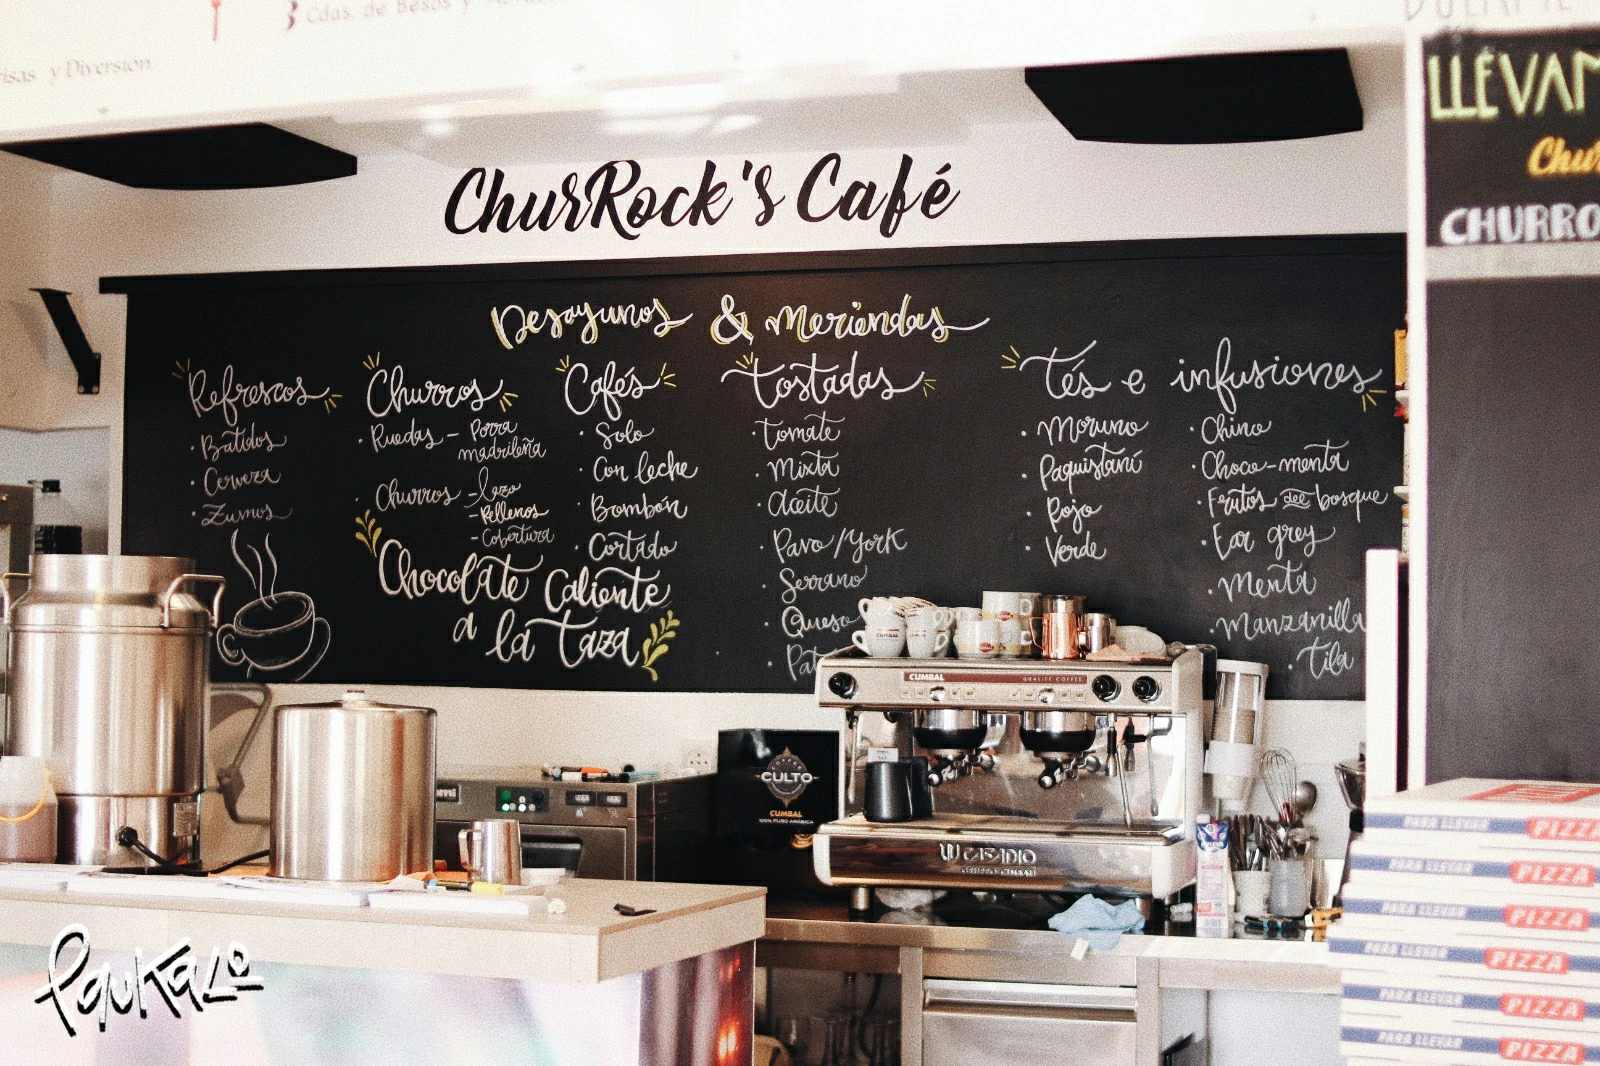 3 Cdas. de Besos y
y Diversion
LLÉVAM
Chur
CHURRO
ChurRock's Café
Desayunos & meriendas
Refrescos
· Batidos
· Cerveza
· Zumos
Churros
· Ruedas - Porra
madrileña
· Churros - lazo
- Rellenos
- Cobertura
Chocolate Caliente
a la taza
Cafés
· Solo
· Con leche
· Bombón
· Cortado
tostadas
· Tomate
· Mixta
· Aceite
· Pavo/York
· Serrano
· Queso
Tés e infusiones
· Moruno
· Paquistaní
· Rojo
· Verde
· Chino
· Choco-menta
· Frutos del bosque
· Ear grey
· Menta
· Manzanilla
· Tila
CUMBAL
CUMBAL
CUMBAL
QUALITY COFFEE
CULTO
CUMBAL
100% PURO ARABICA
CASADIO
PARA LLEVAR PIZZA
PARA LLEVAR PIZZA
PARA LLEVAR PIZZA
PARA LLEVAR PIZZA
PARA LLEVAR PIZZA
PARA LLEVAR PIZZA
Paukalo